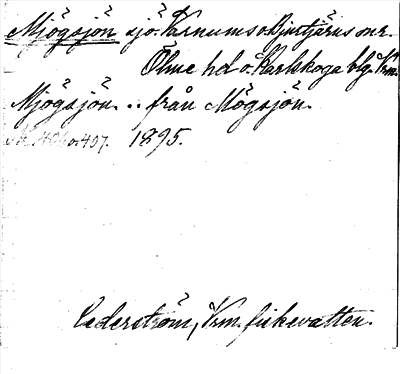 Mjögsjön sjö. Varnums o. Bjurtjärns snr.
Ölme hd o. Karlskoga blg. Vrm.
Mjögsjön. .. från Mögsjön.
406 o. 407. 1895.
Cederström, Vrm. fiskevatten.